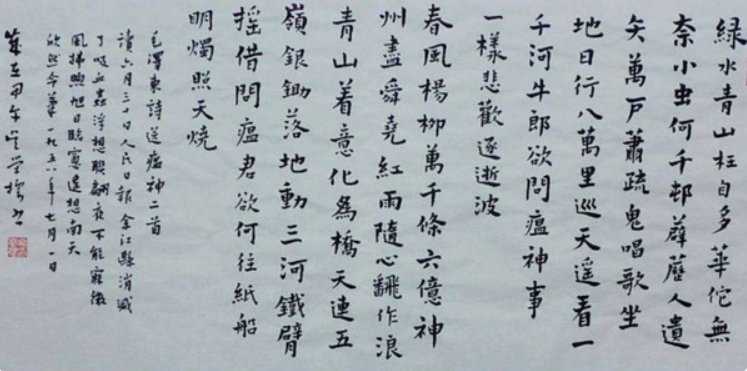 綠水青山枉自多華佗無
奈小虫何千邨薜藶人遺
矢萬戸蕭疏鬼唱歌坐
地日行八萬里巡天遥看一
千河牛郎欲問瘟神事
一樣悲歡逐逝波
春風楊柳萬千條六億神
州盡舜堯紅雨隨心翻作浪
青山着意化為橋天連五
嶺銀鋤落地動三河鐵臂
摇借問瘟君欲何往紙船
明燭照天燒
毛澤東詩送瘟神二首
讀六月三十日人民日報余江縣消滅
了吸血蟲浮想聯翩夜不能寐微
風拂煦旭日臨窗遥想南天
欣然命筆一九五八年七月一日
歲在甲午